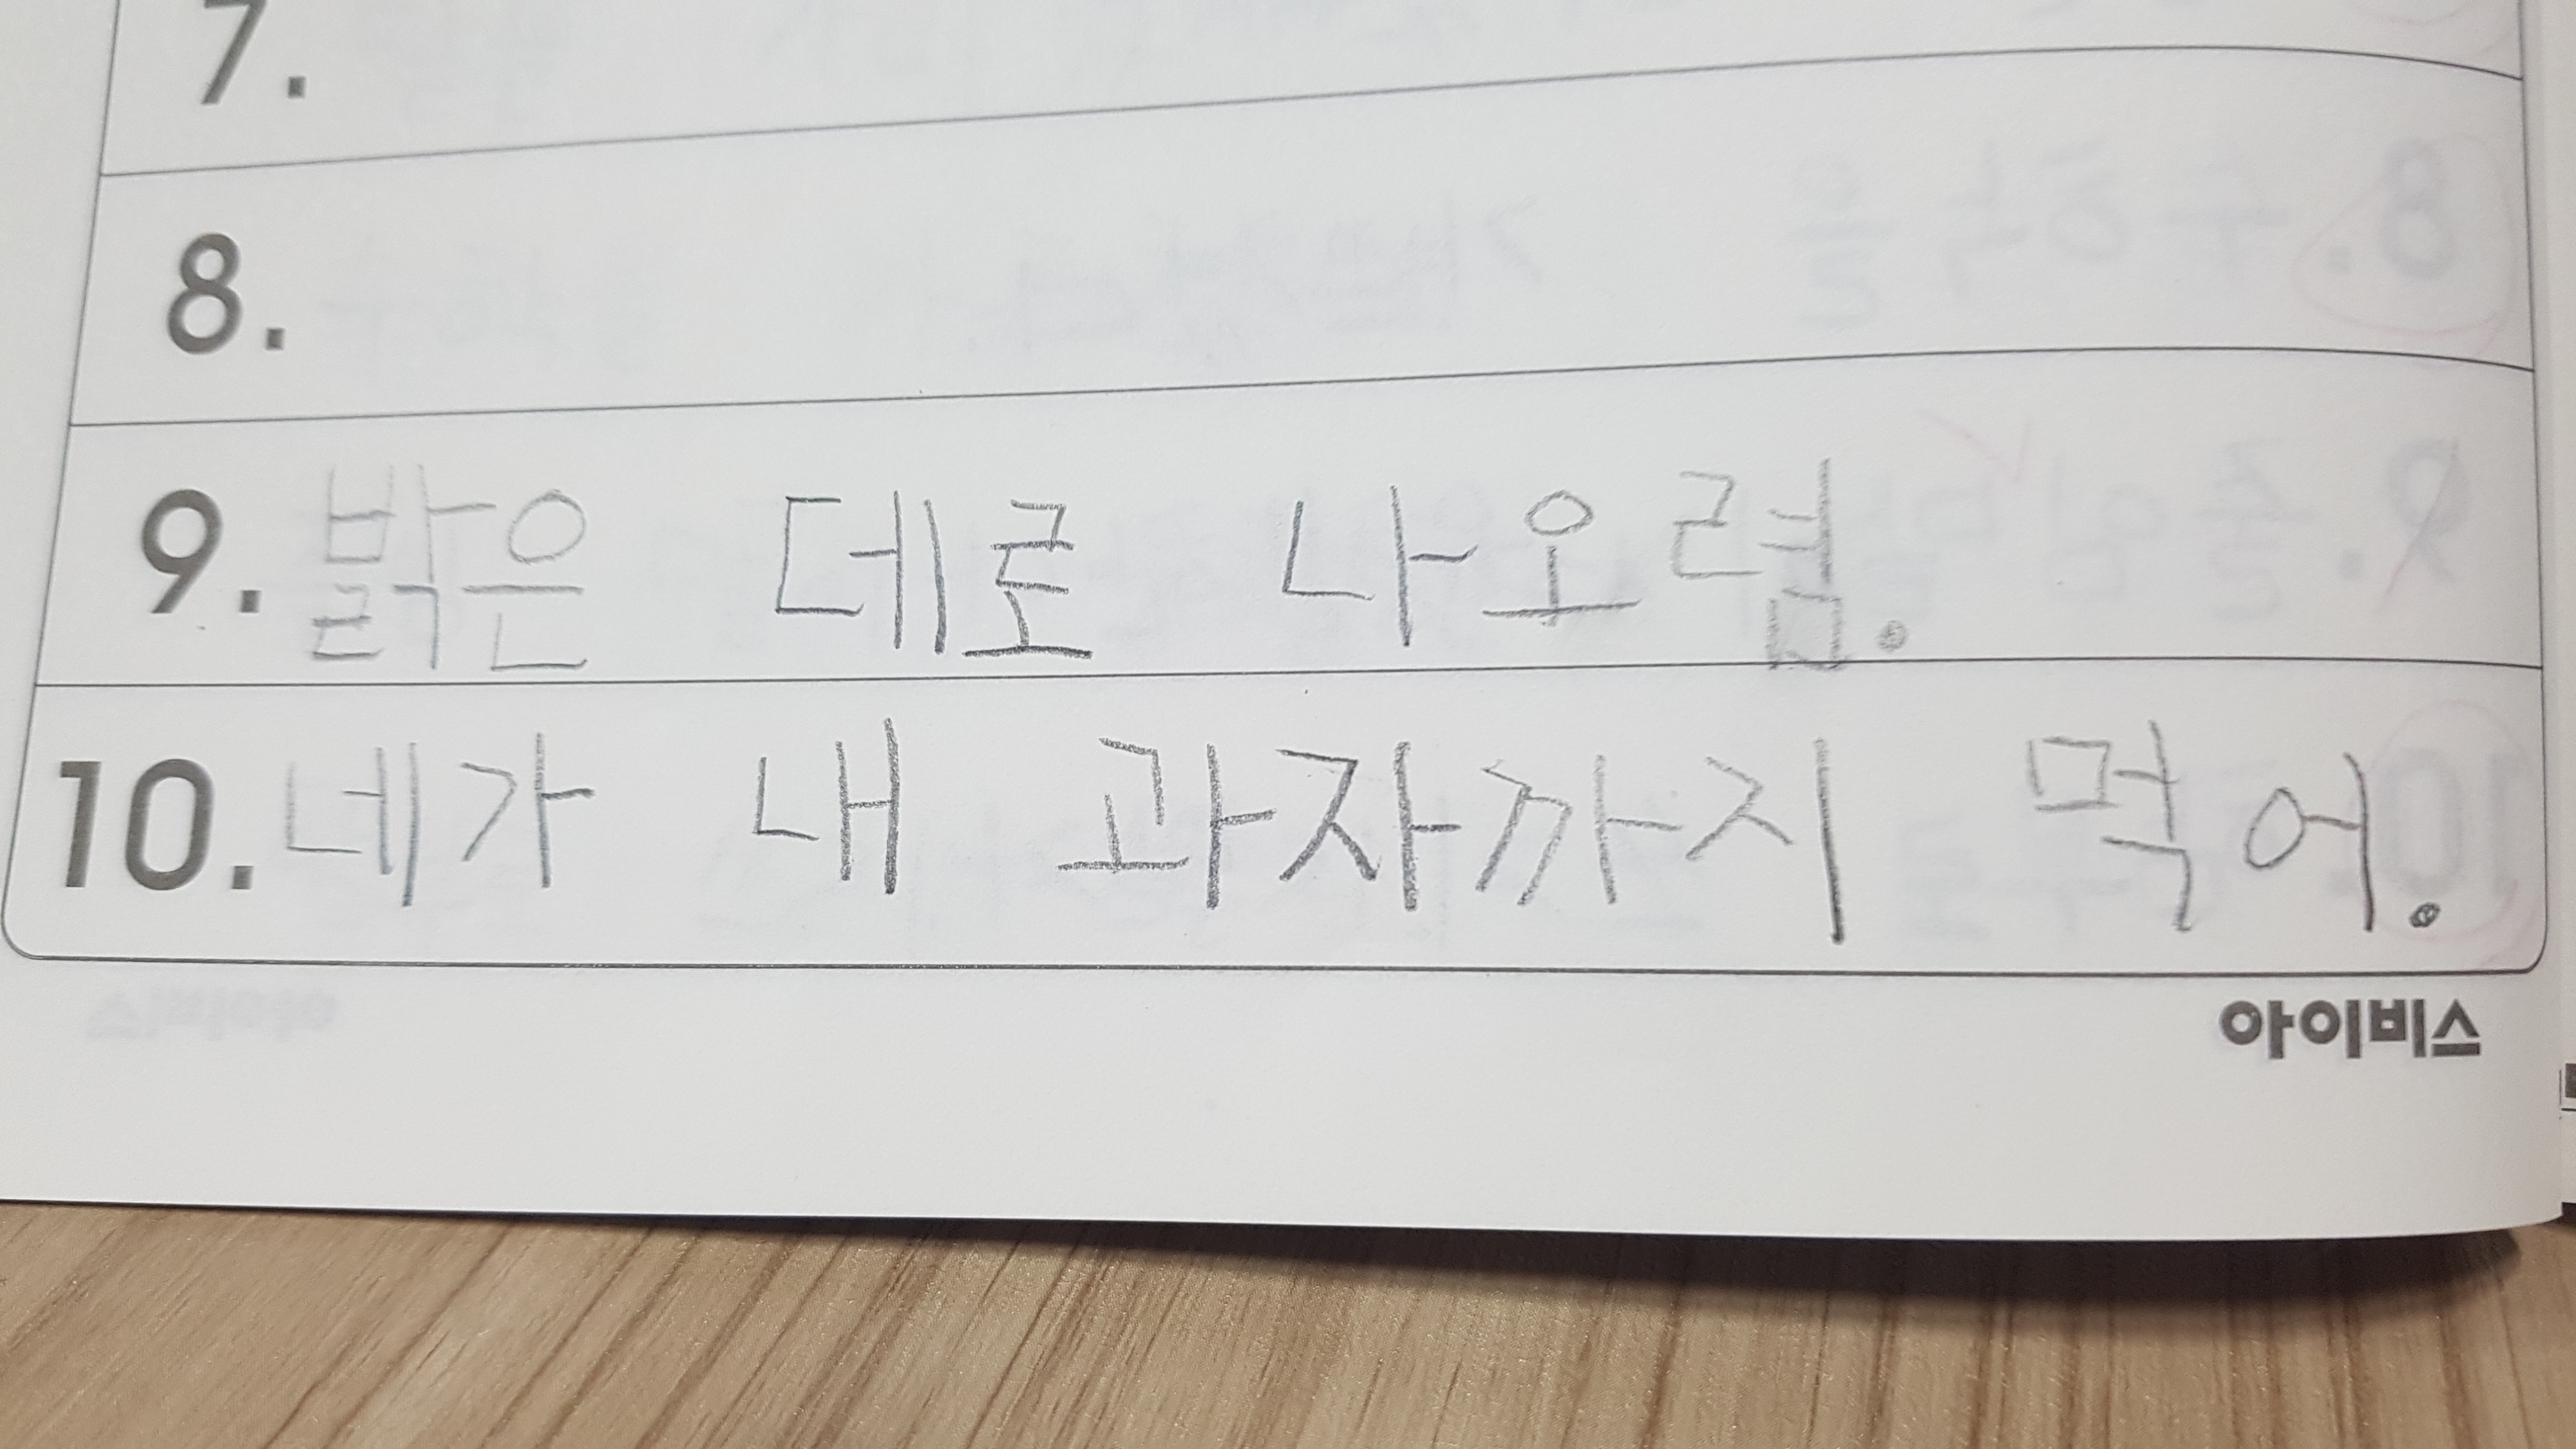 7.
8.
9. 밝은 데로 나오렴.
10. 네가 내 과자까지 먹어.
아이비스